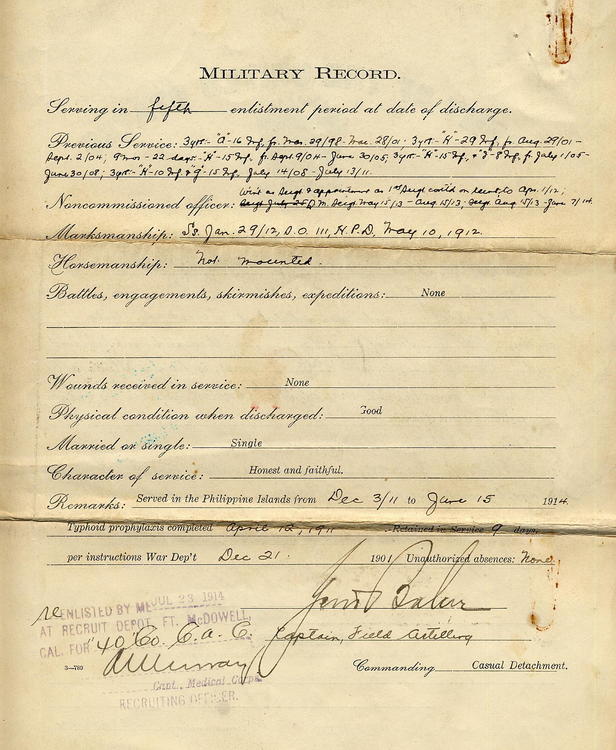 MILITARY RECORD.
Serving in fifth enlistment period at date of discharge.
Previous Service: 3yrs- "A"-16 Inf, fr. Mar. 29/98-Mar. 28/01 - 3yrs- "K"-29 Inf, fr Aug. 29/01-
Sept. 2/04; 9 mos - 22 days- "K"-15 Inf, fr. Sept. 9/04- June 30/05, 3yrs- "K"-15 Inf, & "J"-8 Inf, fr July 1/05-
June 30/08; 3yrs- "K"-10 Inf & "G"-15 Inf, July 14/08 - July 13/11.
as Sergt & appointed as 1st Sergt to Apr. 1/12;
Noncommissioned officer: Q.M. Sergt. May 15/13 - Aug 15/13; Sergt Aug 15/13 - June 7/14.
Marksmanship: Ss. Jan. 29/12, S.O. 111, H.P.D, May 10, 1912.
Horsemanship: Not mounted.
Battles, engagements, skirmishes, expeditions: None
Wounds received in service: None
Physical condition when discharged: Good
Married or single: Single
Character of service: Honest and faithful.
Remarks: Served in the Philippine Islands from Dec 3/11 to June 15 1914.
Typhoid prophylaxis completed April 12, 1911 Retained in Service 9 days.
per instructions War Dep't Dec 21. 1901 Unauthorized absences: None
re ENLISTED BY ME JUL 23 1914
AT RECRUIT DEPOT, FT. McDOWELL,
CAL. FOR "40" Co. C. A. C. Captain, Field Artillery
Murray
3-780 Commanding Casual Detachment.
Capt., Medical Corps
RECRUITING OFFICER.